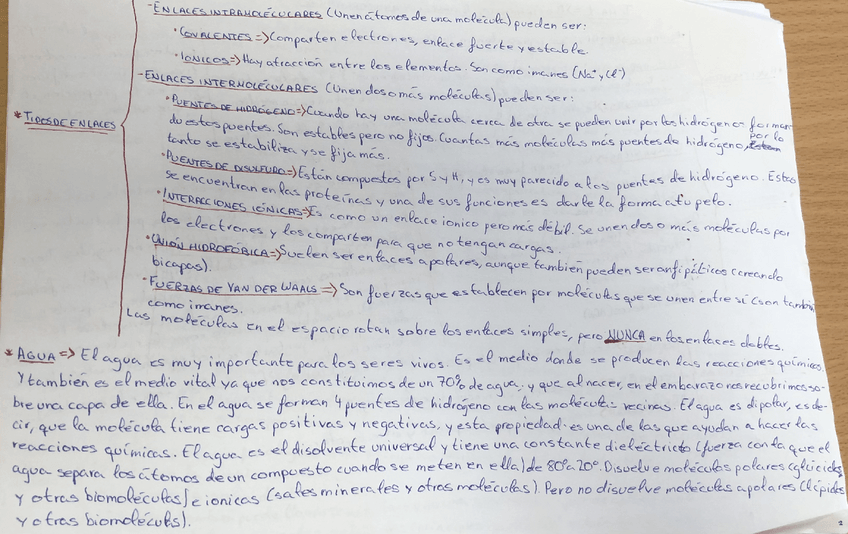 - ENLACES INTRAMOLÉCULARES (Unen átomos de una molécula) pueden ser:
· COVALENTES => Comparten electrones, enlace fuerte y estable.
· IÓNICOS => Hay atracción entre los elementos. Son como imanes (Na⁺ y Cl⁻)
- ENLACES INTERMOLÉCULARES (Unen dos o más moléculas) pueden ser:
* TIPOS DE ENLACES
· PUENTES DE HIDRÓGENO => Cuando hay una molécula cerca de otra se pueden unir por los hidrógenos forman
do estos puentes. Son estables pero no fijos. Cuantas más moléculas más puentes de hidrógeno, por lo
tanto se estabiliza y se fija más.
· PUENTES DE DISULFURO => Están compuestos por S y H, y es muy parecido a los puentes de hidrógeno. Estos
se encuentran en las proteínas y una de sus funciones es darle la forma a tu pelo.
· INTERACCIONES IÓNICAS => Es como un enlace ionico pero más débil. Se unen dos o más moléculas por
los electrones y los comparten para que no tengan cargas.
· UNIÓN HIDROFÓBICA => Suelen ser enlaces apolares, aunque también pueden ser anfipáticos (creando
bicapas).
· FUERZAS DE VAN DER WAALS => Son fuerzas que establecen por moléculas que se unen entre sí (son también
como imanes.
Las moléculas en el espacio rotan sobre los enlaces simples, pero NUNCA en los enlaces dobles.
* AGUA => El agua es muy importante para los seres vivos. Es el medio donde se producen las reacciones químicas
y también es el medio vital ya que nos constituimos de un 70% de agua, y que al nacer, en el embarazo nos recubrimos so-
bre una capa de ella. En el agua se forman 4 puentes de hidrógeno con las moléculas vecinas. El agua es dipolar, es de-
cir, que la molécula tiene cargas positivas y negativas, y esta propiedad es una de las que ayudan a hacer las
reacciones químicas. El agua es el disolvente universal y tiene una constante dieléctrica (fuerza con la que el
agua separa los átomos de un compuesto cuando se meten en ella) de 80º a 20º. Disuelve moléculas polares (glúcidos
y otras biomoléculas) e ionicas (sales minerales y otras moléculas). Pero no disuelve moléculas apolares (lípidos
y otras biomoléculas).
2